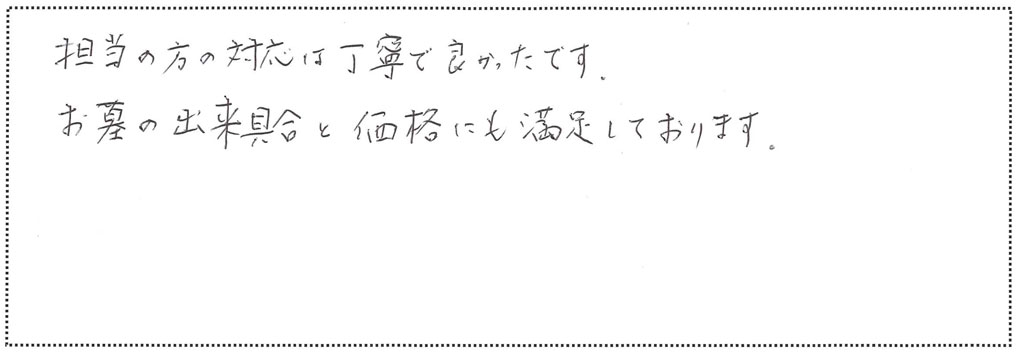 担当の方の対応は丁寧で良かったです。
お墓の出来具合と価格にも満足しております。